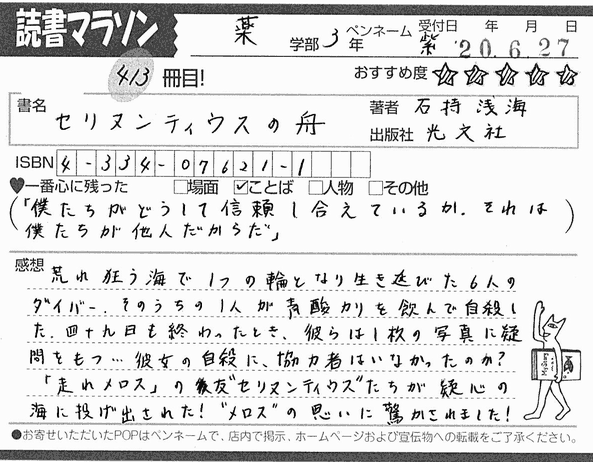 読書マラソン
薬 学部 3年 ペンネーム 紫 受付日 年 月 日
'20.6.27
413 冊目! おすすめ度 ☆☆☆☆☆
書名 セリヌンティウスの舟
著者 石持浅海
出版社 光文社
ISBN 4-334-07621-1
♥一番心に残った □場面 ☑ことば □人物 □その他
(「僕たちがどうして信頼し合えているか.それは
僕たちが他人だからだ」)
感想 荒れ狂う海で1つの輪となり生き延びた6人の
ダイバー.そのうちの1人が青酸カリを飲んで自殺し
た.四十九日も終わったとき、彼らは1枚の写真に疑
問をもつ…彼女の自殺に、協力者はいなかったのか?
「走れメロス」の親友"セリヌンティウス"たちが疑心の
海に投げ出された!"メロス"の思いに驚かされました!
●お寄せいただいたPOPはペンネームで、店内で掲示、ホームページおよび宣伝物への転載をご了承ください。